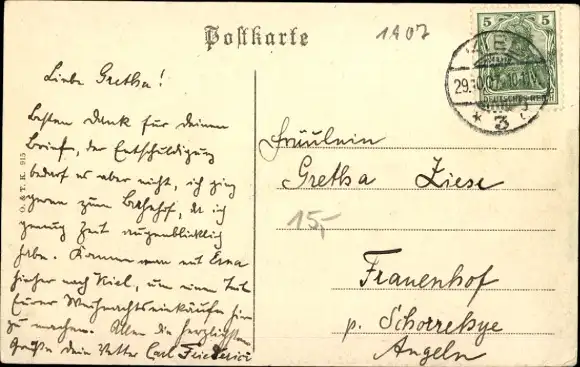 Postkarte
1907
5 5
DEUTSCHES REICH
KIEL
29.10.07. 10-11V.
* 3
Liebe Gretha!
Besten Dank für deinen
Brief, der Entschuldigung
bedarf es aber nicht, ich ging
gerne zum Bahnhof, da ich
genug Zeit augenblicklich
habe. Komme man mit Erna
hierher nach Kiel, um einen Teil
Eurer Weihnachtseinkäufe hier
zu machen. Allen die herzlichsten
Grüße dein Vetter Carl Friederici
O. & T. K. 915
Fräulein
Gretha Ziese
15,-
Frauenhof
p. Schorrehye
Angeln